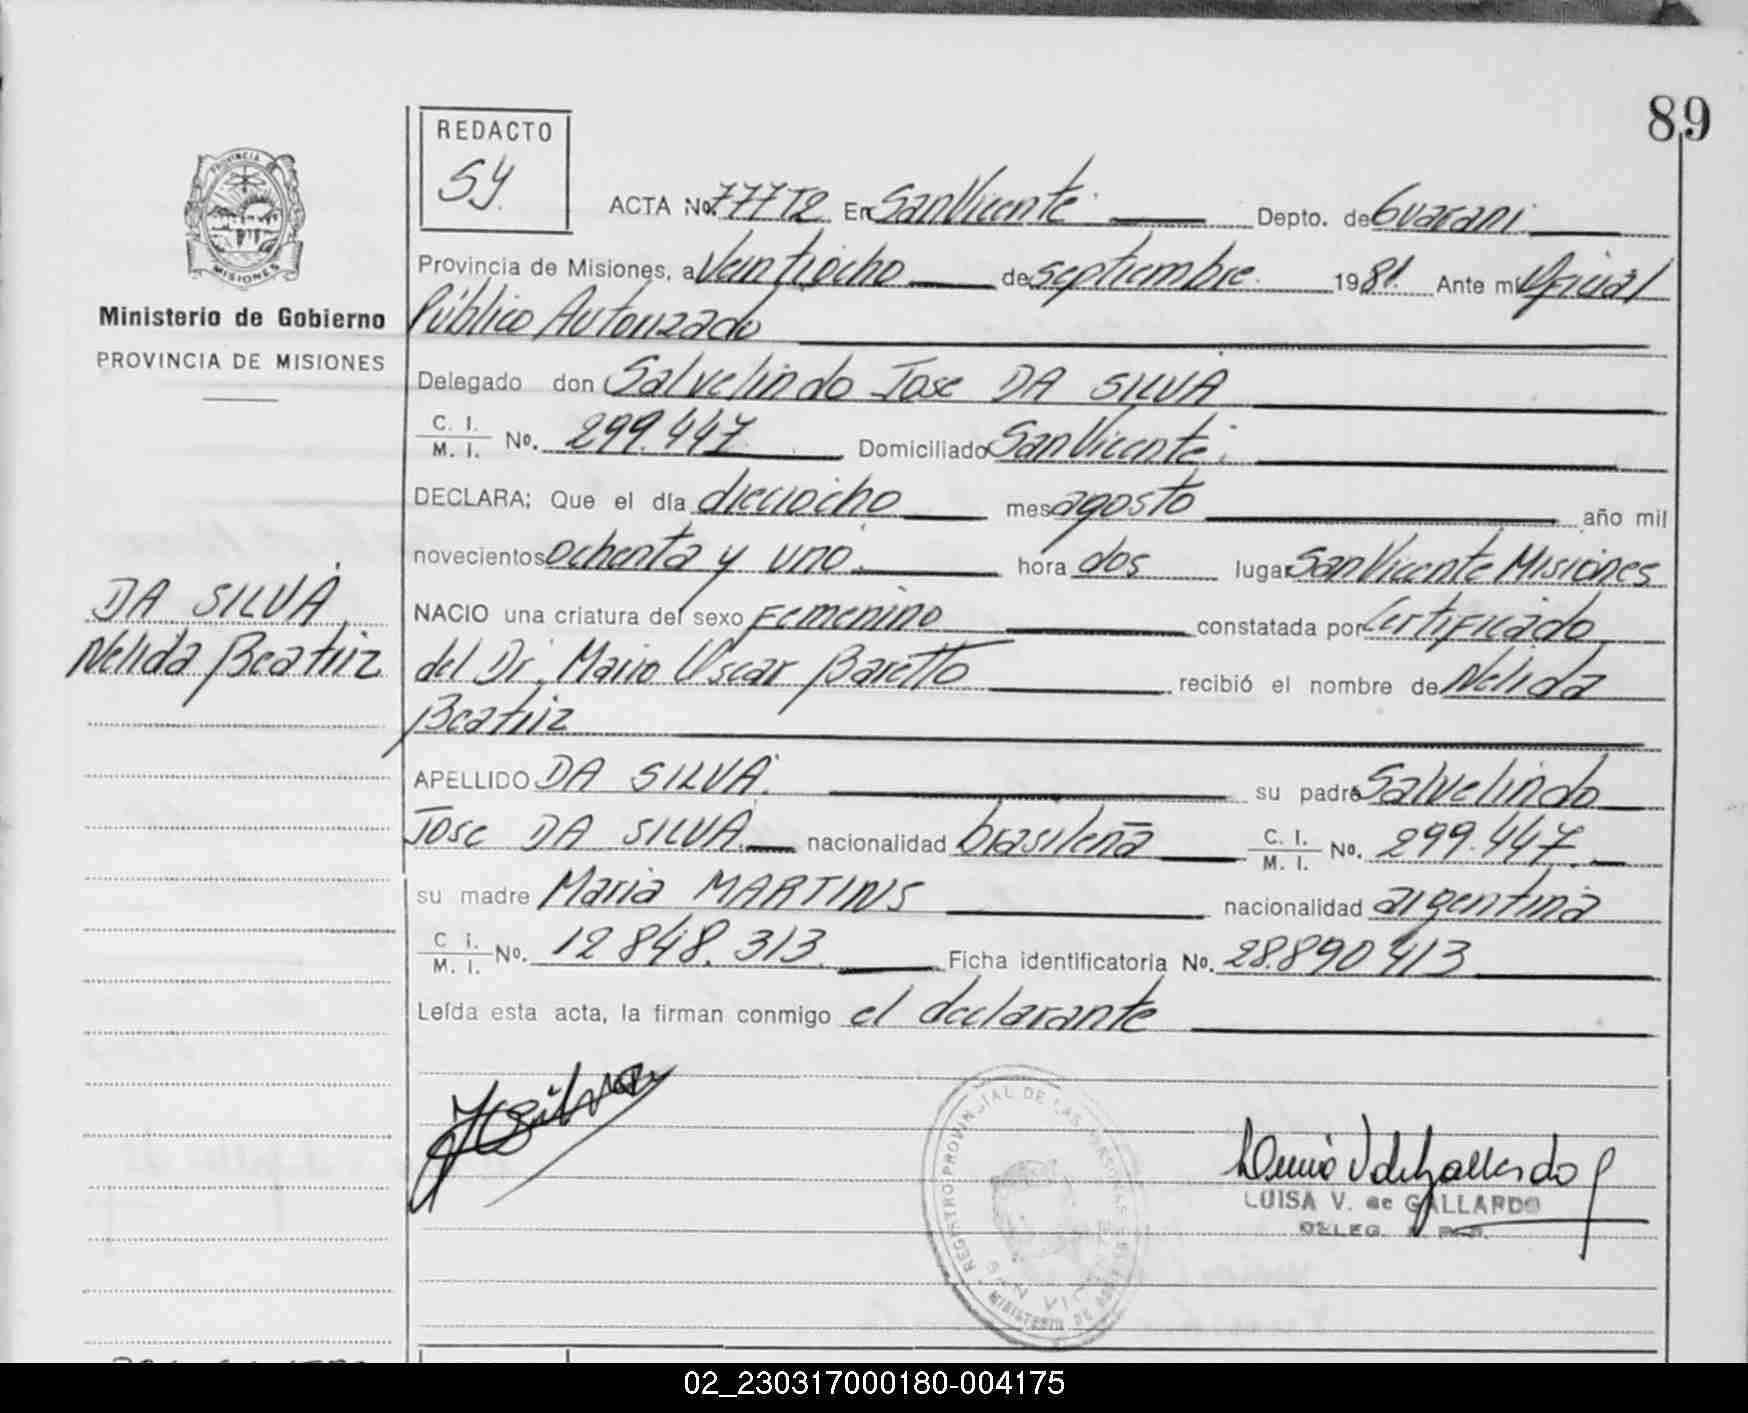 89
REDACTO
SY.
PROVINCIA DE
MISIONES
Ministerio de Gobierno
PROVINCIA DE MISIONES
DA SILVA
Nelida Beatriz
ACTA No. 777T2 En San Vicente Depto. de Guarani
Provincia de Misiones, a Veintiocho de septiembre 1981. Ante mi Oficial
Público Autorizado
Delegado don Salvelindo Jose DA SILVA
C. I. / M. I. No. 299.447 Domiciliado San Vicente
DECLARA; Que el día dieciocho mes agosto año mil
novecientos ochenta y uno. hora dos lugar San Vicente Misiones
NACIO una criatura del sexo Femenino constatada por Certificado
del Dr. Mario Oscar Baretto recibió el nombre de Nelida
Beatriz
APELLIDO DA SILVA. su padre Salvelindo
Jose DA SILVA nacionalidad brasileña C. I. / M. I. No. 299.447
su madre Maria MARTINS nacionalidad argentina
C. I. / M. I. No. 12 848.313 Ficha identificatoria No. 28.890 413
Leída esta acta, la firman conmigo el declarante
REGISTRO PROVINCIAL DE LAS PERSONAS
SAN VICENTE
MINISTERIO DE
LUISA V. de GALLARDO
DELEG.
02_230317000180-004175